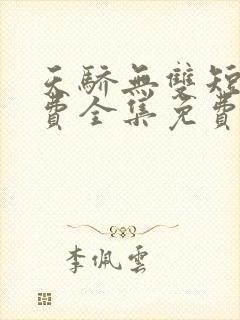 天驕無雙短
費全集免費
李佩雲